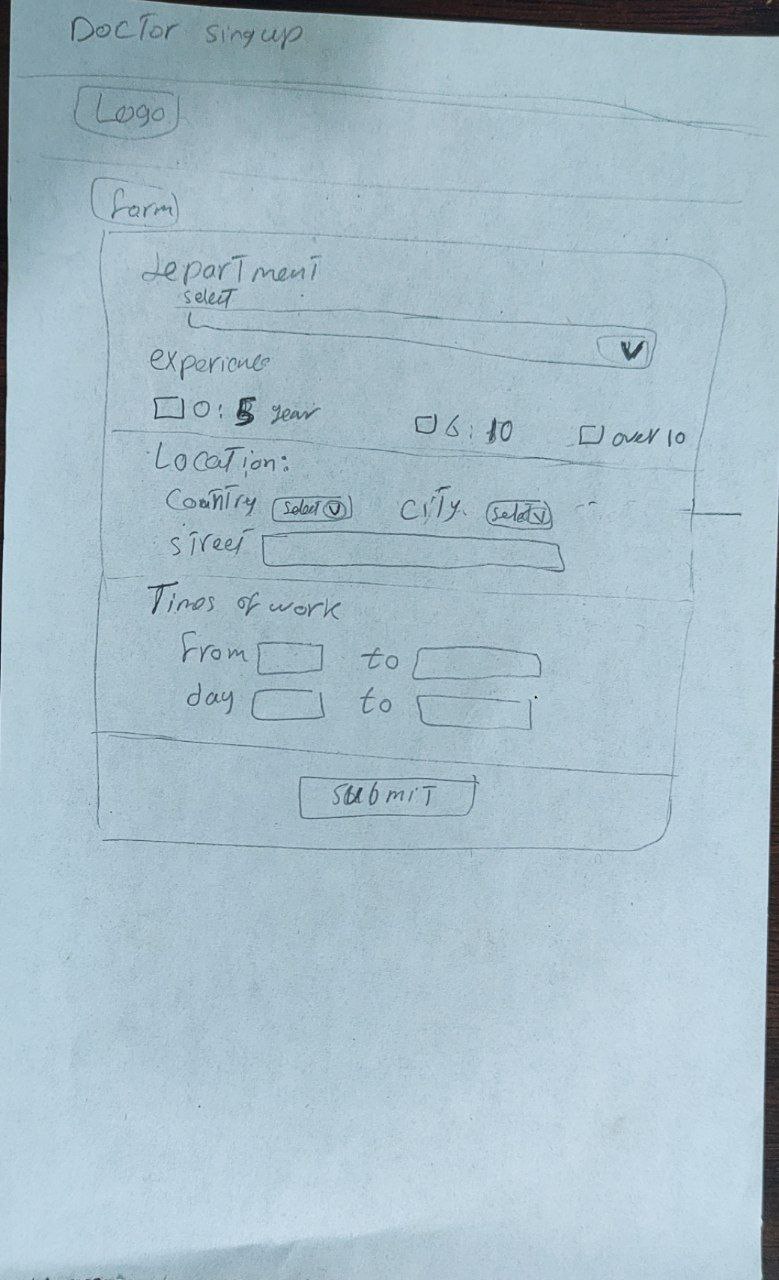 Doctor singup
Logo
form
department
select
experience
0:5 year 6:10 over 10
Location:
Country select City. select
street
Times of work
from to
day to
submit